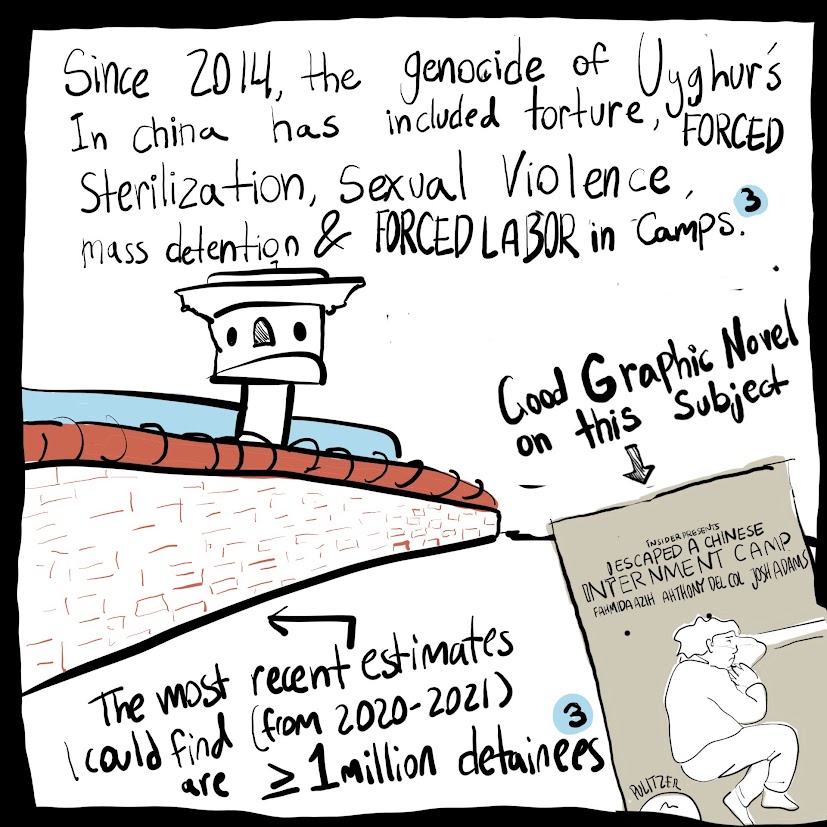 Since 2014, the genocide of Uyghur's
In china has included torture, FORCED
Sterilization, Sexual Violence,
mass detention & FORCED LABOR in Camps. 3
Good Graphic Novel
on this Subject
INSIDER PRESENTS
I ESCAPED A CHINESE
INTERNMENT CAMP
FAHMIDA AZIH AHTHONY DEL COL JOSH ADAMS
The most recent estimates
I could find (from 2020-2021)
are ≥ 1 million detainees 3
PULITZER